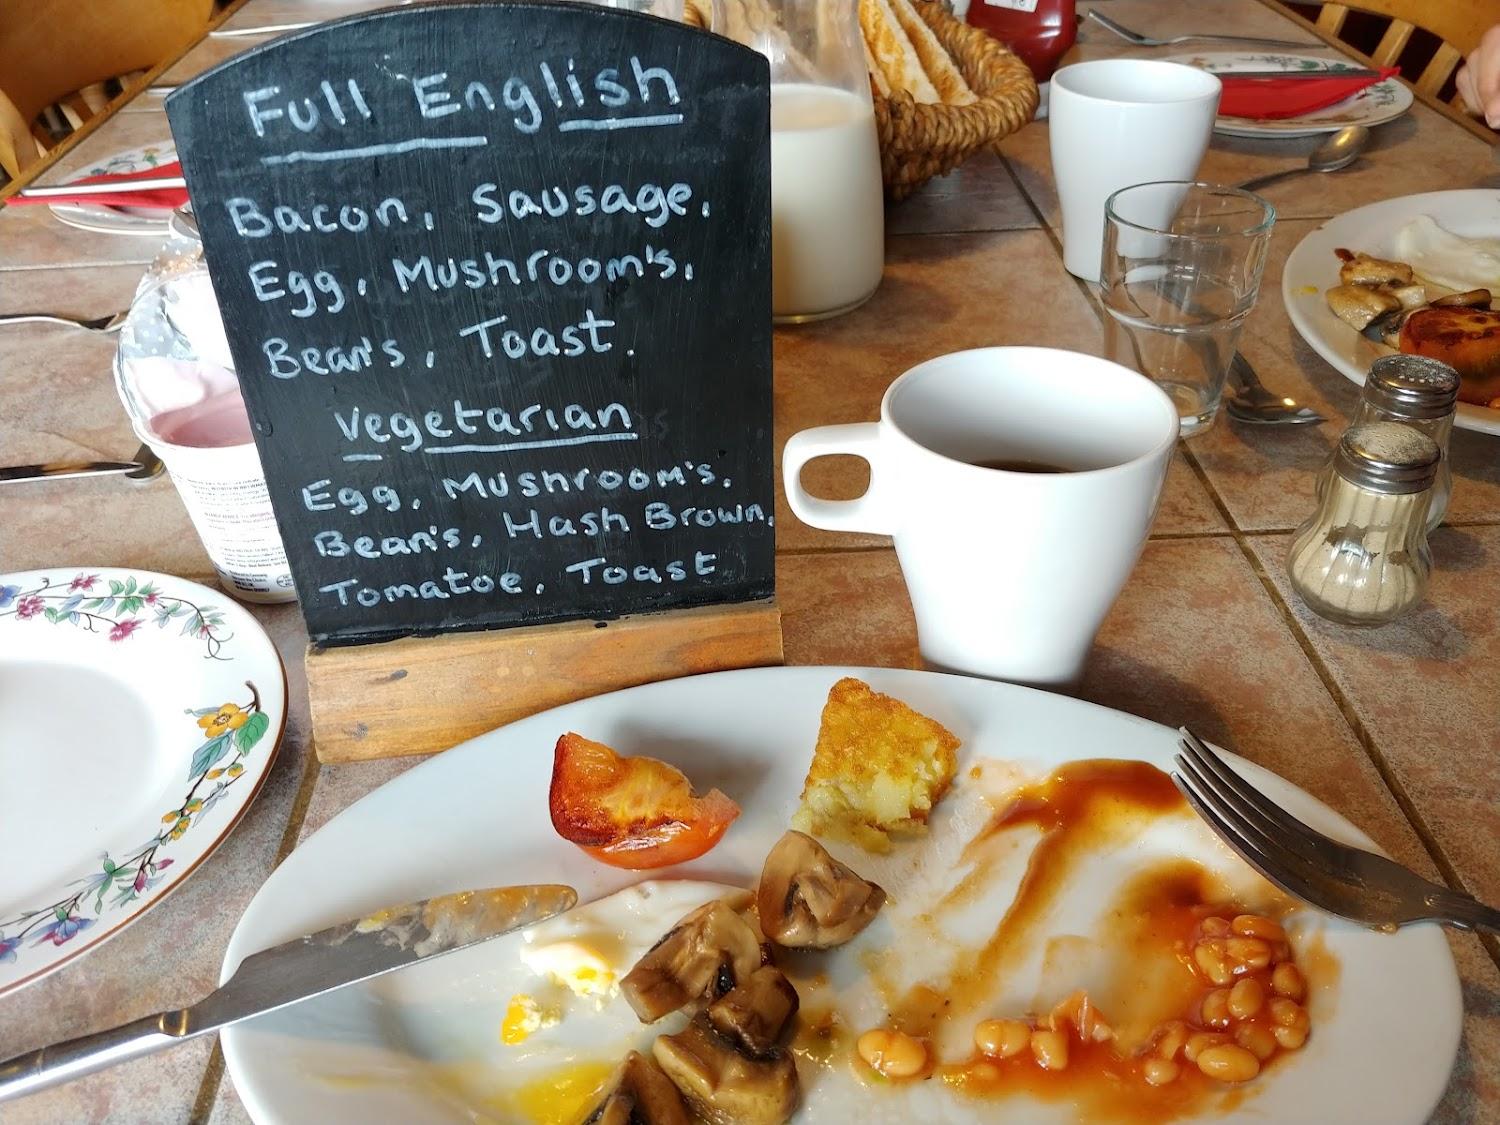 Full English
Bacon, Sausage,
Egg, Mushroom's,
Bean's, Toast.
Vegetarian
Egg, Mushroom's,
Bean's, Hash Brown,
Tomatoe, Toast